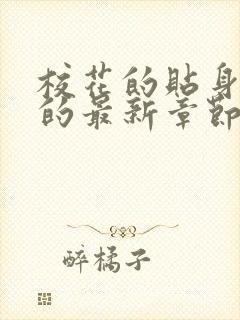 校花的貼身
的最新章節
醉橘子